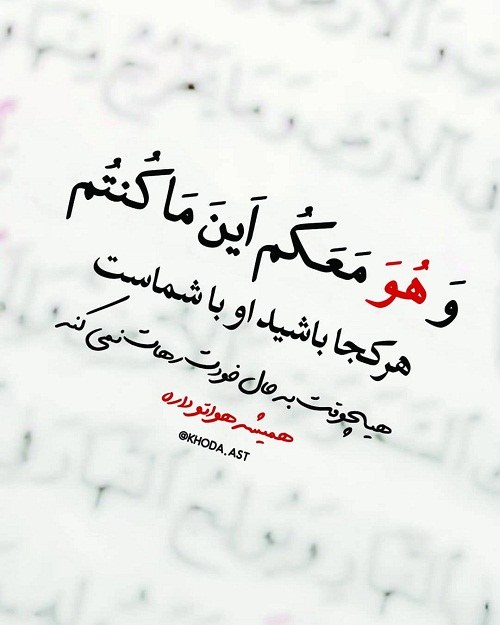 وَ هُوَ مَعَكُم اَینَ مَا كُنتُم
هر کجا باشید او با شماست
هیچوقت به حال خودت رهات نمی کنه
همیشه هواتو داره
@KHODA.AST